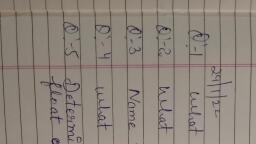 29/1/22
Q-1 what
Q-2 What
Q-3 Name
Q-4 what
Q-5 Determi
float e